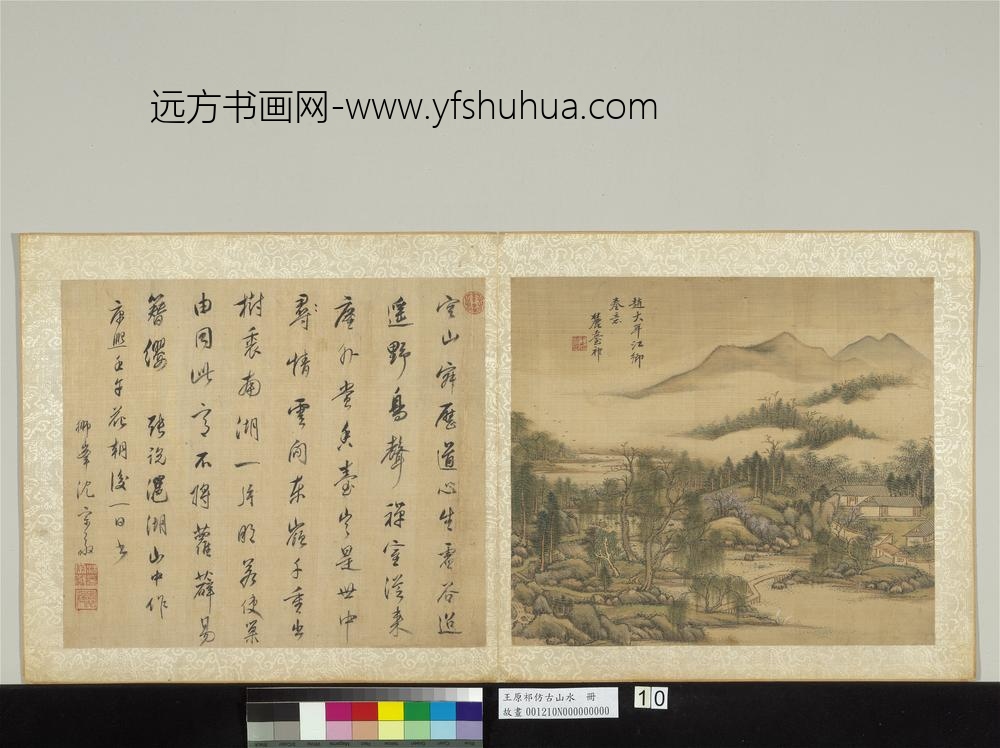 远方书画网-www.yfshuhua.com
趙大年江鄉
春意
麓臺祁
空山寂歷道心生虛谷迢
遙野鳥聲禪室從來
塵外賞香臺豈是世中
情雲間東嶺千重出
樹裏南湖一片明若使巢
由同此意不將蘿薜易
簪纓 張說㴩湖山中作
康熙壬午花朝後一日書
獅峯沈宗敬
王原祁仿古山水 冊
故畫 001210N000000000
10